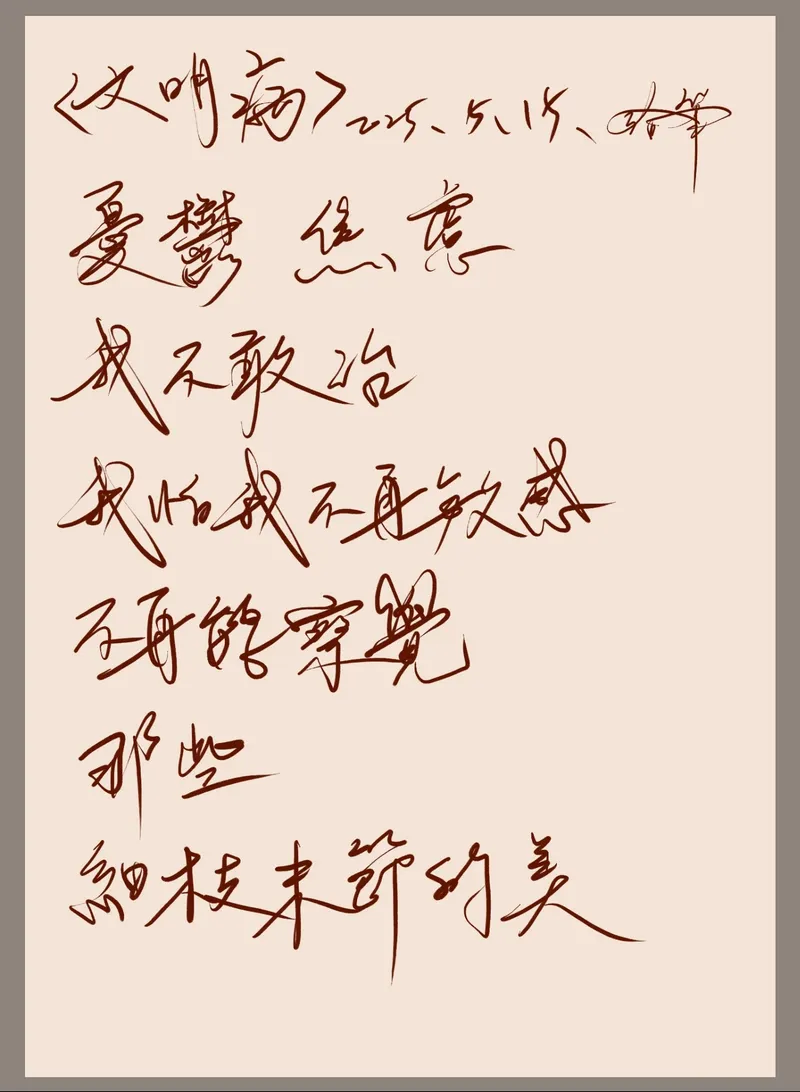 〈文明病〉2025、5、15、
憂鬱 焦慮
我不敢治
我怕我不再敏感
不再能察覺
那些
細枝末節的美